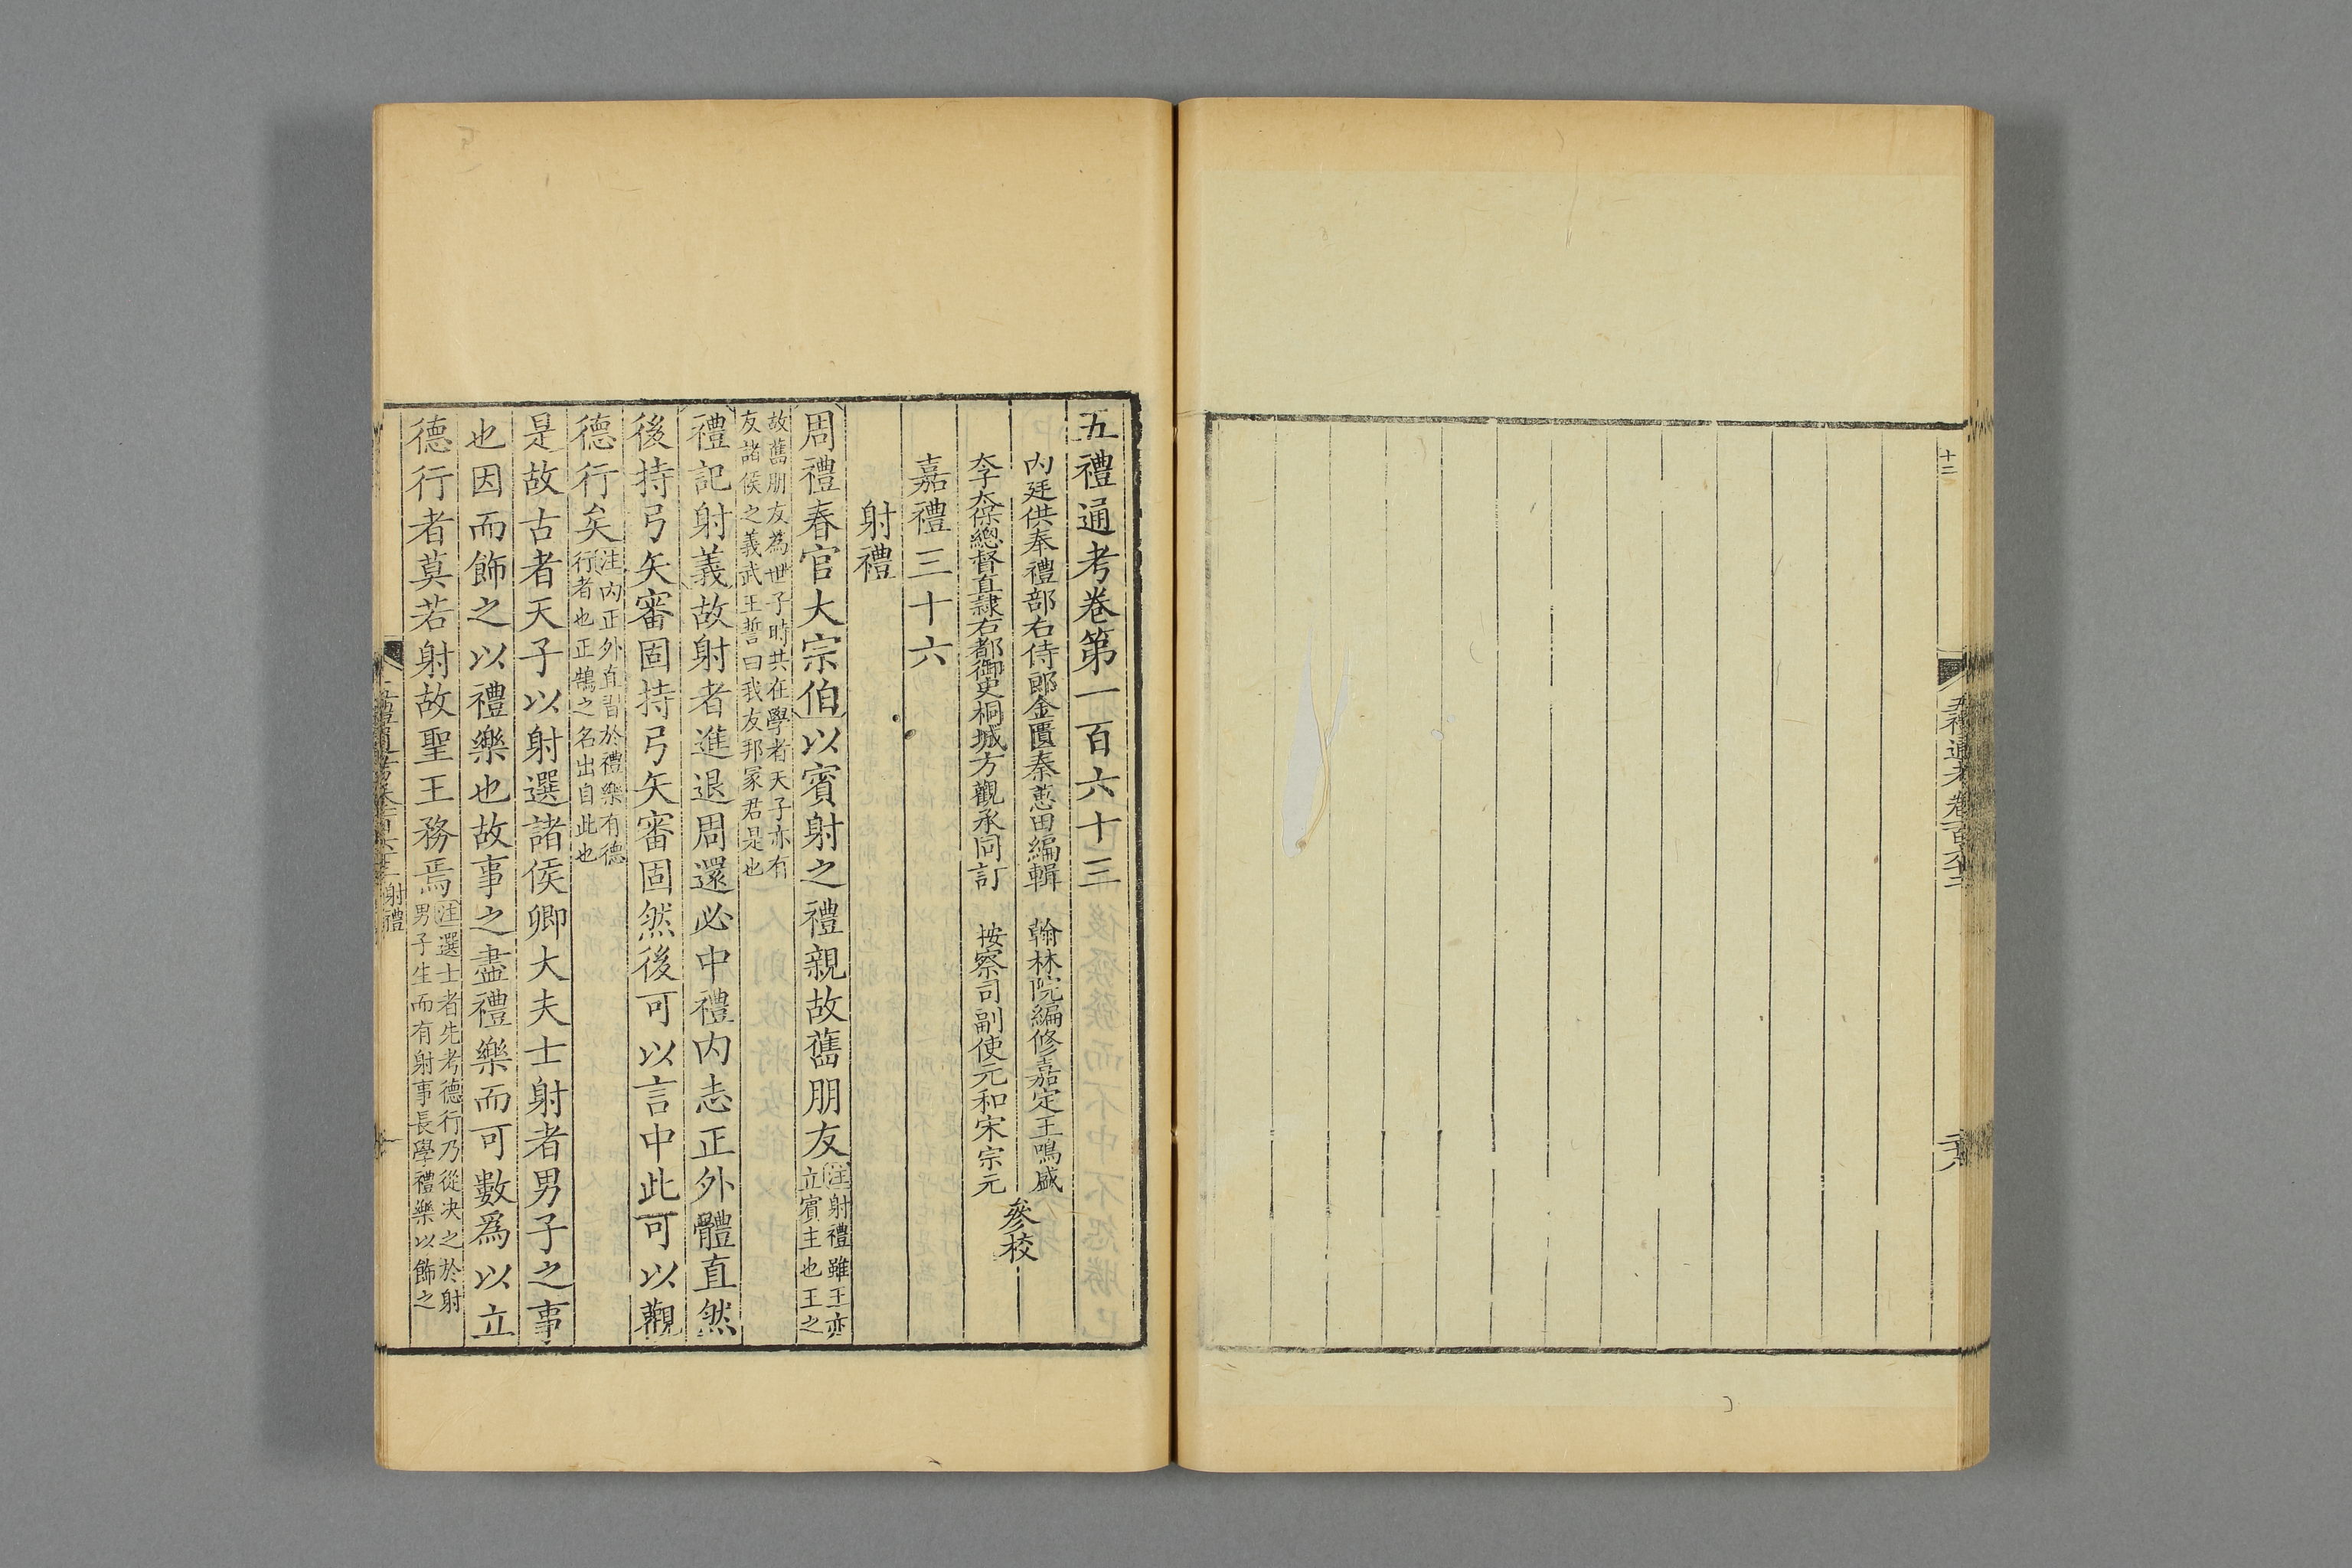 五禮通考卷第一百六十三
內廷供奉禮部右侍郎金匱秦蕙田編輯　翰林院編修嘉定王鳴盛
太子太保總督直隸右都御史桐城方觀承同訂　按察司副使元和宋宗元
參校
嘉禮三十六
射禮
周禮春官大宗伯以賓射之禮親故舊朋友注射禮雖王亦立賓主也王之
故舊朋友為世子時共在學者天子亦有友諸侯之義武王誓曰我友邦冢君是也
禮記射義故射者進退周還必中禮內志正外體直然
後持弓矢審固持弓矢審固然後可以言中此可以觀
德行矣注內正外直習於禮樂有德行者也正鵠之名出自此也
是故古者天子以射選諸侯卿大夫士射者男子之事
也因而飾之以禮樂也故事之盡禮樂而可數為以立
德行者莫若射故聖王務焉注選士者先考德行乃從決之於射男子生而有射事長學禮樂以飾之
射禮
十二
五禮通考卷百六十二